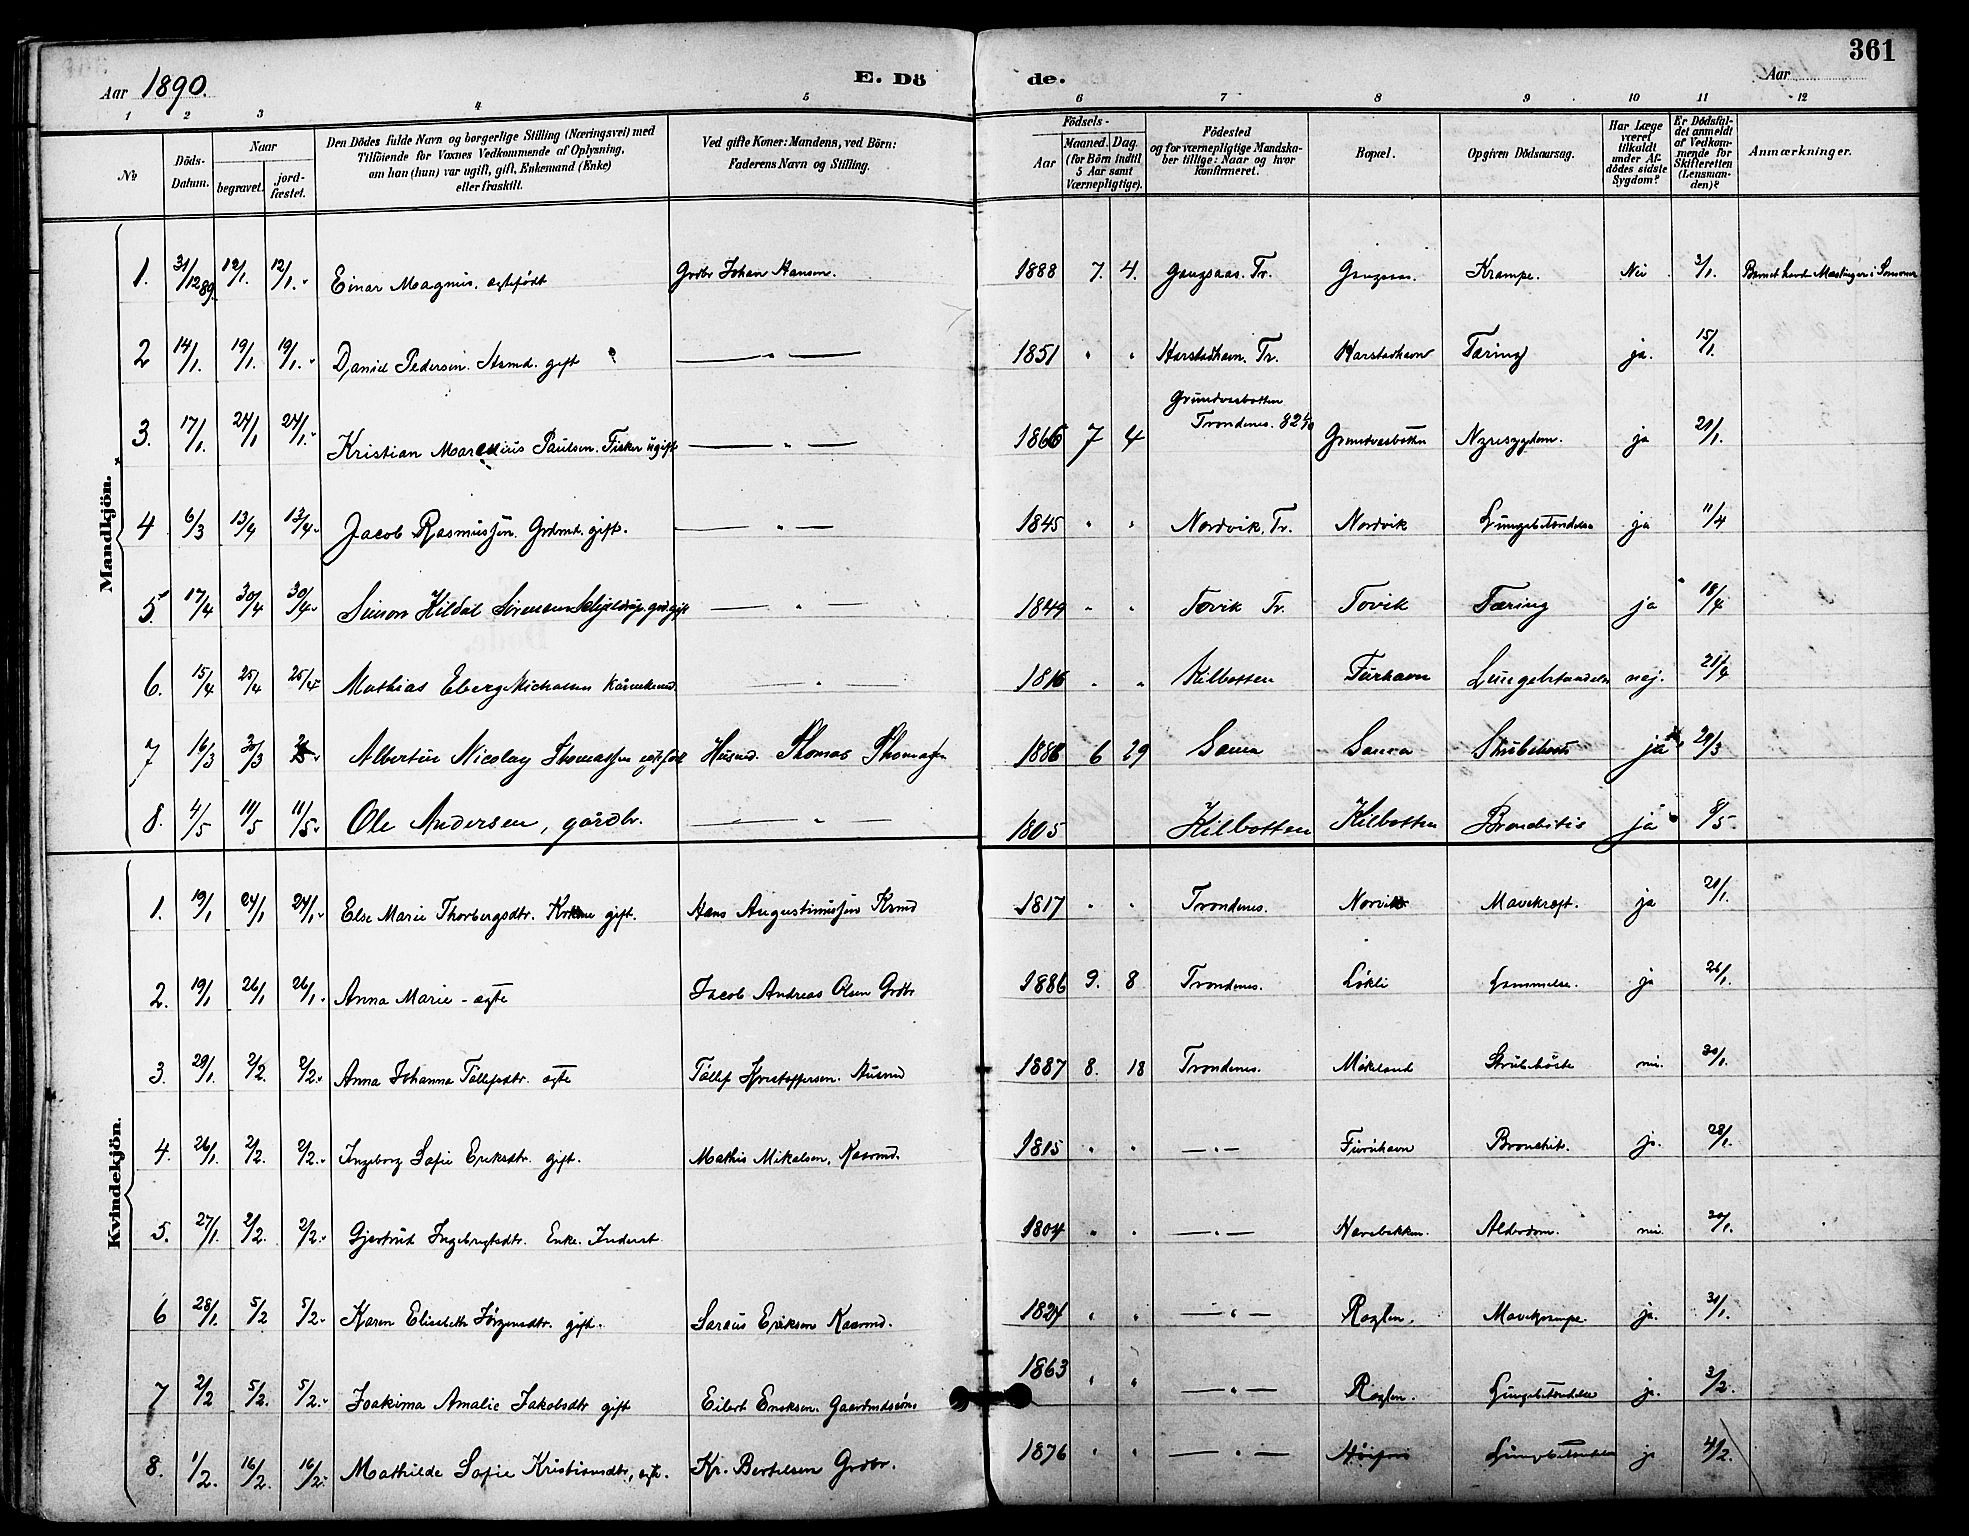 361
Aar 1890. E. Dö de. Aar
1 2 3 4 5 6 7 8 9 10 11 12
№
Döds-Datum.
Naar
begravet.
jord-fæstet.
Den Dödes fulde Navn og borgerlige Stilling (Næringsvei) med
Tilföiende for Voxnes Vedkommende af Oplysning,
om han (hun) var ugift, gift, Enkemand (Enke)
eller fraskilt.
Ved gifte Koner: Mandens, ved Börn:
Faderens Navn og Stilling.
Födsels-
Aar
Maaned. Dag.
(for Börn indtil
5 Aar samt
Værnepligtige).
Födested
og for værnepligtige Mandska-
ber tillige: Naar og hvor
konfirmeret.
Bopæl.
Opgiven Dödsaarsag.
Har Læge
været
tilkaldt
under Af-
dödes sidste
Sygdom?
Er Dödsfal-
det anmeldt
af Vedkom-
mende for
Skifteretten
(Lensman-
den)?
Anmærkninger.
Mandkjön.
1. 31/12 89. 12/1. 12/1. Einar Magnus. ægtefødt Grdbr Johan Hansen. 1888 7. 4. Gangsaas. Tr. Gangsaas. Krampe. Nei 3/1. Barnet havde Mæslinger i Sommer
2 14/1. 19/1. 19/1. Daniel Pedersen. Husmd. gift — " — 1851 " " Harstadhavn. Tr. Harstadhavn Tæring ja. 15/1.
3. 17/1. 24/1 24/1. Kristian Marelius Paulsen. Fisker ugift — " — 1866 7 4 Grundvasbotten Trondenes. 82 Grundvasbotten Nyresygdom. ja 21/1.
4 6/3 13/4 13/4. Jacob Rasmussen. Grdmd. gift. — " — 1845 " " Nordvik, Tr. Nordvik Lungebetændelse ja 11/4
5. 17/4 30/4 30/4. Simon Kildal Sørensen Schjelderup, grd. gift — " — 1849 " " Tovik Tr. Tovik Tæring ja 18/4
6. 15/4 25/4 25/4 Mathias Eberg Michalsen — " — 1816 " " Kilbotten Furhavn Lungebetændelse nej. 21/4
7 16/3 30/3 Albertin Nicolay Thomassen ægtefødt Husmd. Thomas Thomassen 1886 6 29 Sama Sama Strubehoste ja 20/3
8. 4/5 11/5 11/5. Ole Andersen, gårdbr. — " — 1805 Kilbotten Kilbotten Bronchitis ja 8/5
Kvindekjön.
1. 19/1 24/1 24/1. Else Marie Thorbergsdtr. gift. Hans Augustinussen Krmd 1817 " " Trondenes. Norvik Mavekræft. ja 21/1.
2. 19/1 26/1 26/1. Anna Marie - ægte Jacob Andreas Olsen Grdbr 1886 9. 8 Trondenes. Løkli Lammelse. ja 26/1.
3. 29/1. 2/2. 2/2. Anna Johanna Tollefsdtr. ægte Tollef Kristoffersen. Husmd 1887 8. 18 Trondenes. Møkeland Strubehoste nei. 30/1.
4. 26/1. 2/2. 2/2. Ingeborg Sofie Eriksdtr. gift. Mathis Mikalsen, Kaarmd. 1815 " " — " — Furuhavn Bronchit. ja. 28/1.
5. 27/1. 2/2. 2/2. Gjertrud Ingebrigtsdtr. Enke. Inderst 1804 " " — " — Havebakken. Alderdom. nei. 30/1.
6 28/1. 5/2 5/2. Karen Elisabeth Jørgensdtr. gift. Saraus Eriksen Kaarmd. 1824 " " — " — Rogln. Mavekrampe. ja. 31/1.
7 2/2 5/2. 5/2. Joakima Amalie Jakobsdtr gift Eilert Eriksen. Gaardmdssøns 1863 " " — " — Rogln. Lungebetændelse ja. 3/2.
8. 1/2. 16/2. 16/2. Mathilde Sofie Kristiansdtr, ægte. Kr. Bertelsen Grdbr. 1876 " " — " — Lungebetændelse ja 4/2.